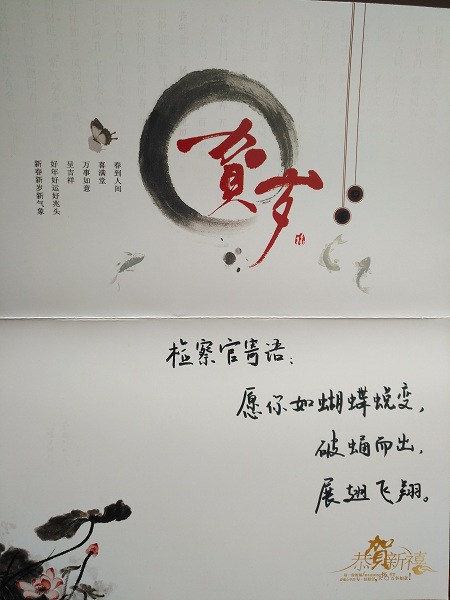 贺岁
春到人间
喜满堂
万事如意
呈吉祥
好年好运好兆头
新春新岁新气象
检察官寄语：
愿你如蝴蝶蜕变，
破蛹而出，
展翅飞翔。
恭贺新禧